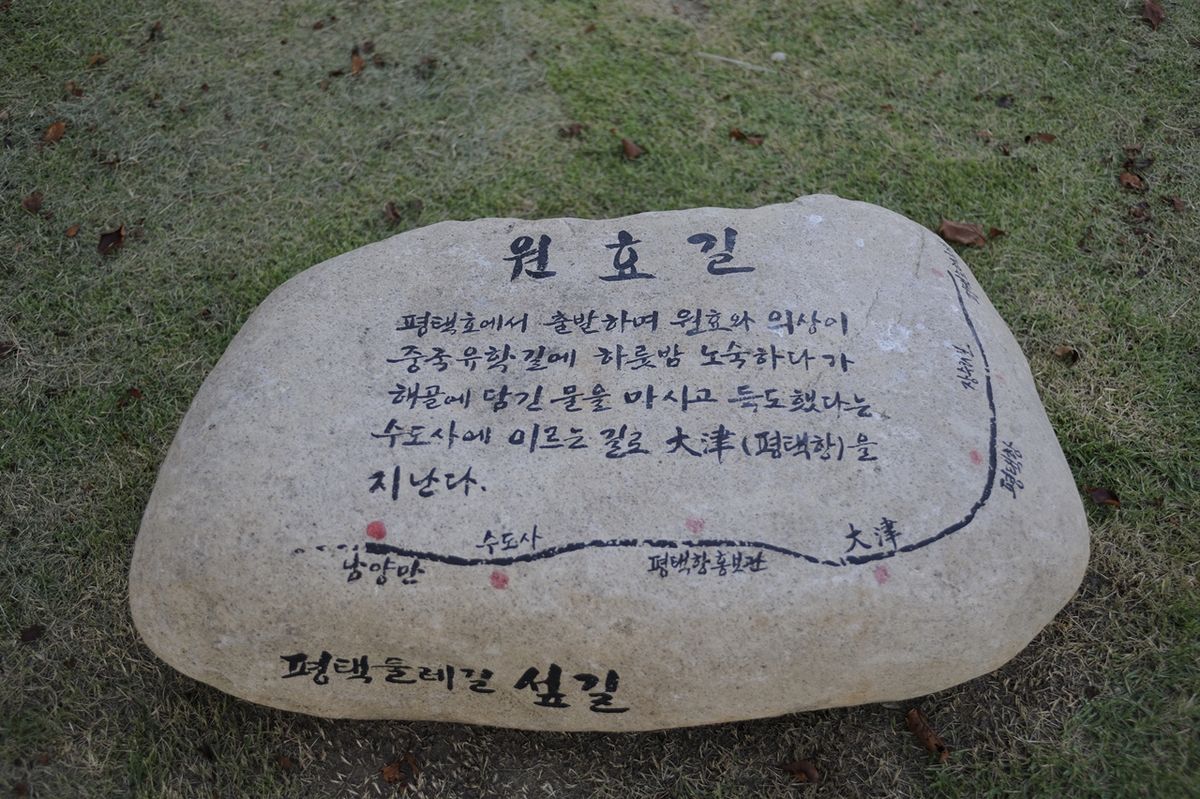 원효길
평택호에서 출발하며 원효와 의상이
중국유학길에 하룻밤 노숙하다가
해골에 담긴 물을 마시고 득도했다는
수도사에 이르는 길로 大津(평택항)을
지난다.
평택항
大津
수도사
평택항홍보관
남양만
평택둘레길 섶길